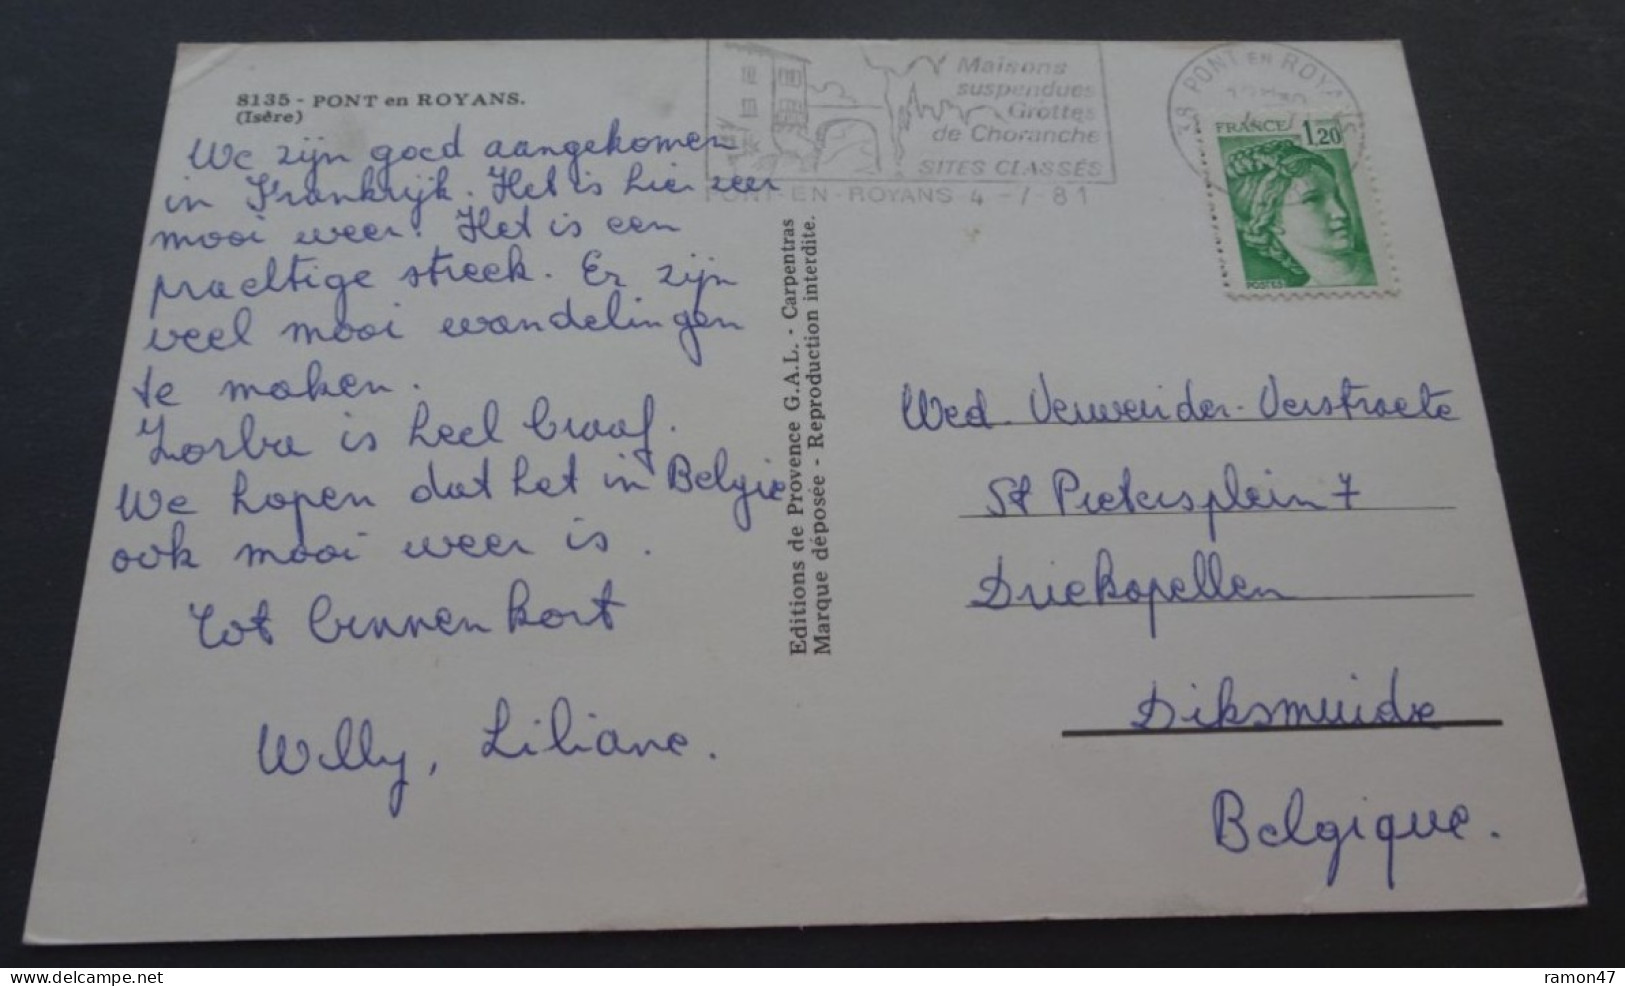 8135 - PONT en ROYANS.
(Isère)
We zijn goed aangekomen
in Frankrijk. Het is hier zeer
mooi weer. Het is een
prachtige streek. Er zijn
veel mooi wandelingen
te maken.
Zorba is heel braaf.
We hopen dat het in Belgie
ook mooi weer is.
Tot binnen kort
Willy, Liliane.
Editions de Provence G.A.L. - Carpentras
Marque déposée - Reproduction interdite.
Maisons
suspendues
Grottes
de Choranche
SITES CLASSÉS
PONT-EN-ROYANS 4 -7-81
38 PONT EN ROYANS
FRANCE 1,20
POSTES
Wed. Verweirder-Verstraete
St Pietersplein 7
Driekapellen
Diksmuide
Belgique.
www.delcampe.net
ramon47